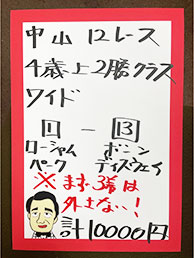 中山12レース
4歳上2勝クラス
ワイド
1 － 13
ローシャムパーク
ボニンディスウェイ
※まず3着は
外さない！
計10000円